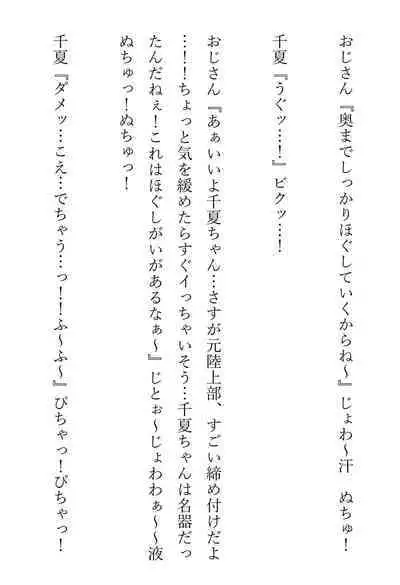 おじさん『奥までしっかりほぐしていくからね～』じょわ～汗　ぬちゅ！
千夏『うぐッ…！』ビクッ…！
おじさん『あぁいいよ千夏ちゃん…さすが元陸上部、すごい締め付けだよ
…！！ちょっと気を緩めたらすぐイっちゃいそう…千夏ちゃんは名器だっ
たんだねぇ！これはほぐしがいがあるなぁ～』じとぉ～じょわわぁ～～液
ぬちゅっ！ぬちゅっ！
千夏『ダメッ…こえ…でちゃう…っ！！ふ～ふ～』ぴちゃっ！ぴちゃっ！